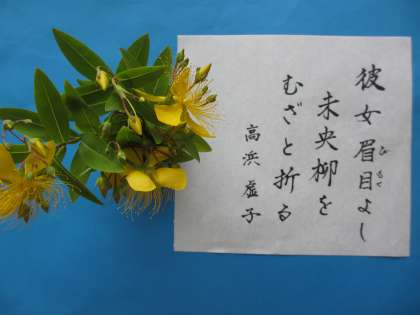 彼女眉目よし
未央柳を
むざと折る
高浜虚子